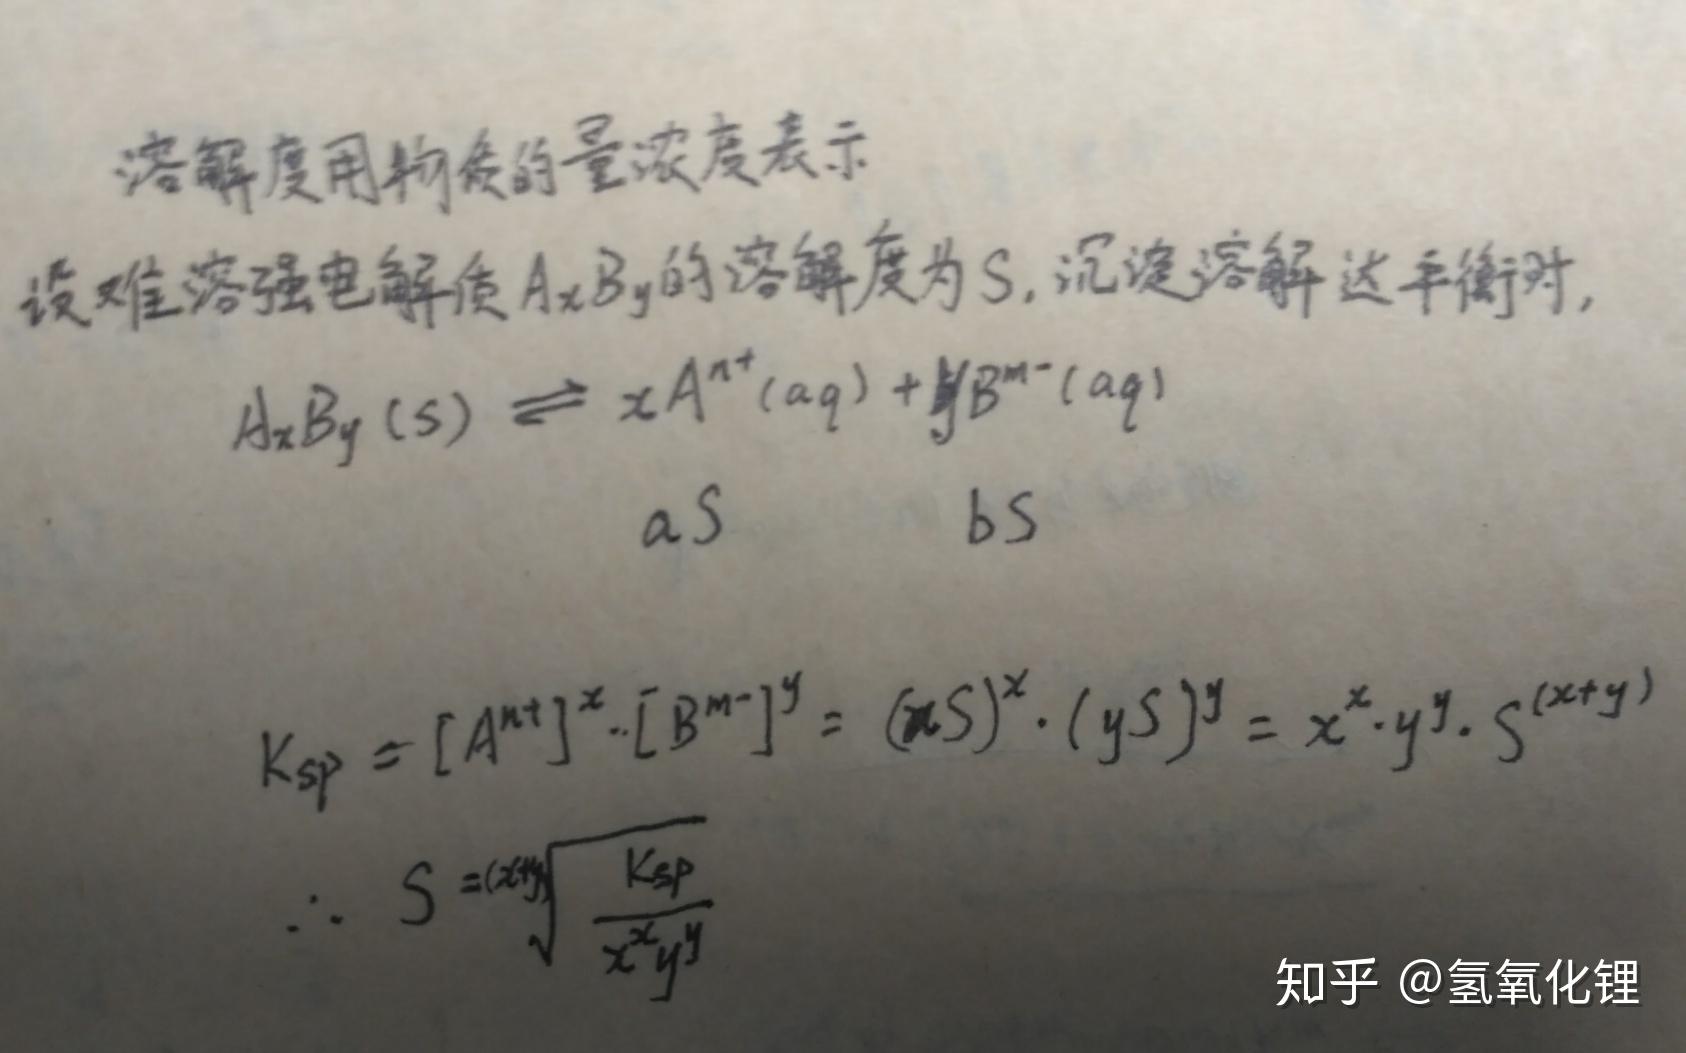 溶解度用物质的量浓度表示
设难溶强电解质AxBy的溶解度为S,沉淀溶解达平衡时,
AxBy(s) ⇌ xAⁿ⁺(aq) + yBᵐ⁻(aq)
aS bS
Ksp = [Aⁿ⁺]ˣ·[Bᵐ⁻]ʸ = (xS)ˣ·(yS)ʸ = xˣ·yʸ·S⁽ˣ⁺ʸ⁾
∴ S = ⁽ˣ⁺ʸ⁾√(Ksp/xˣyʸ)
知乎 @氢氧化锂